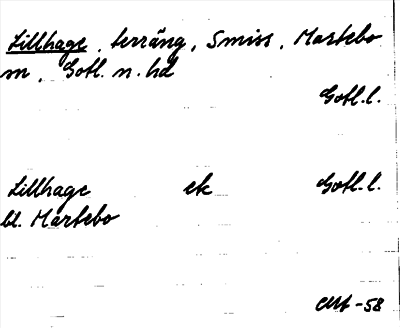 Lillhage, terräng, Smiss, Martebo
sn, Gotl. n. hd
Gotl. l.
Lillhage ek Gotl. l.
bl. Martebo
-58